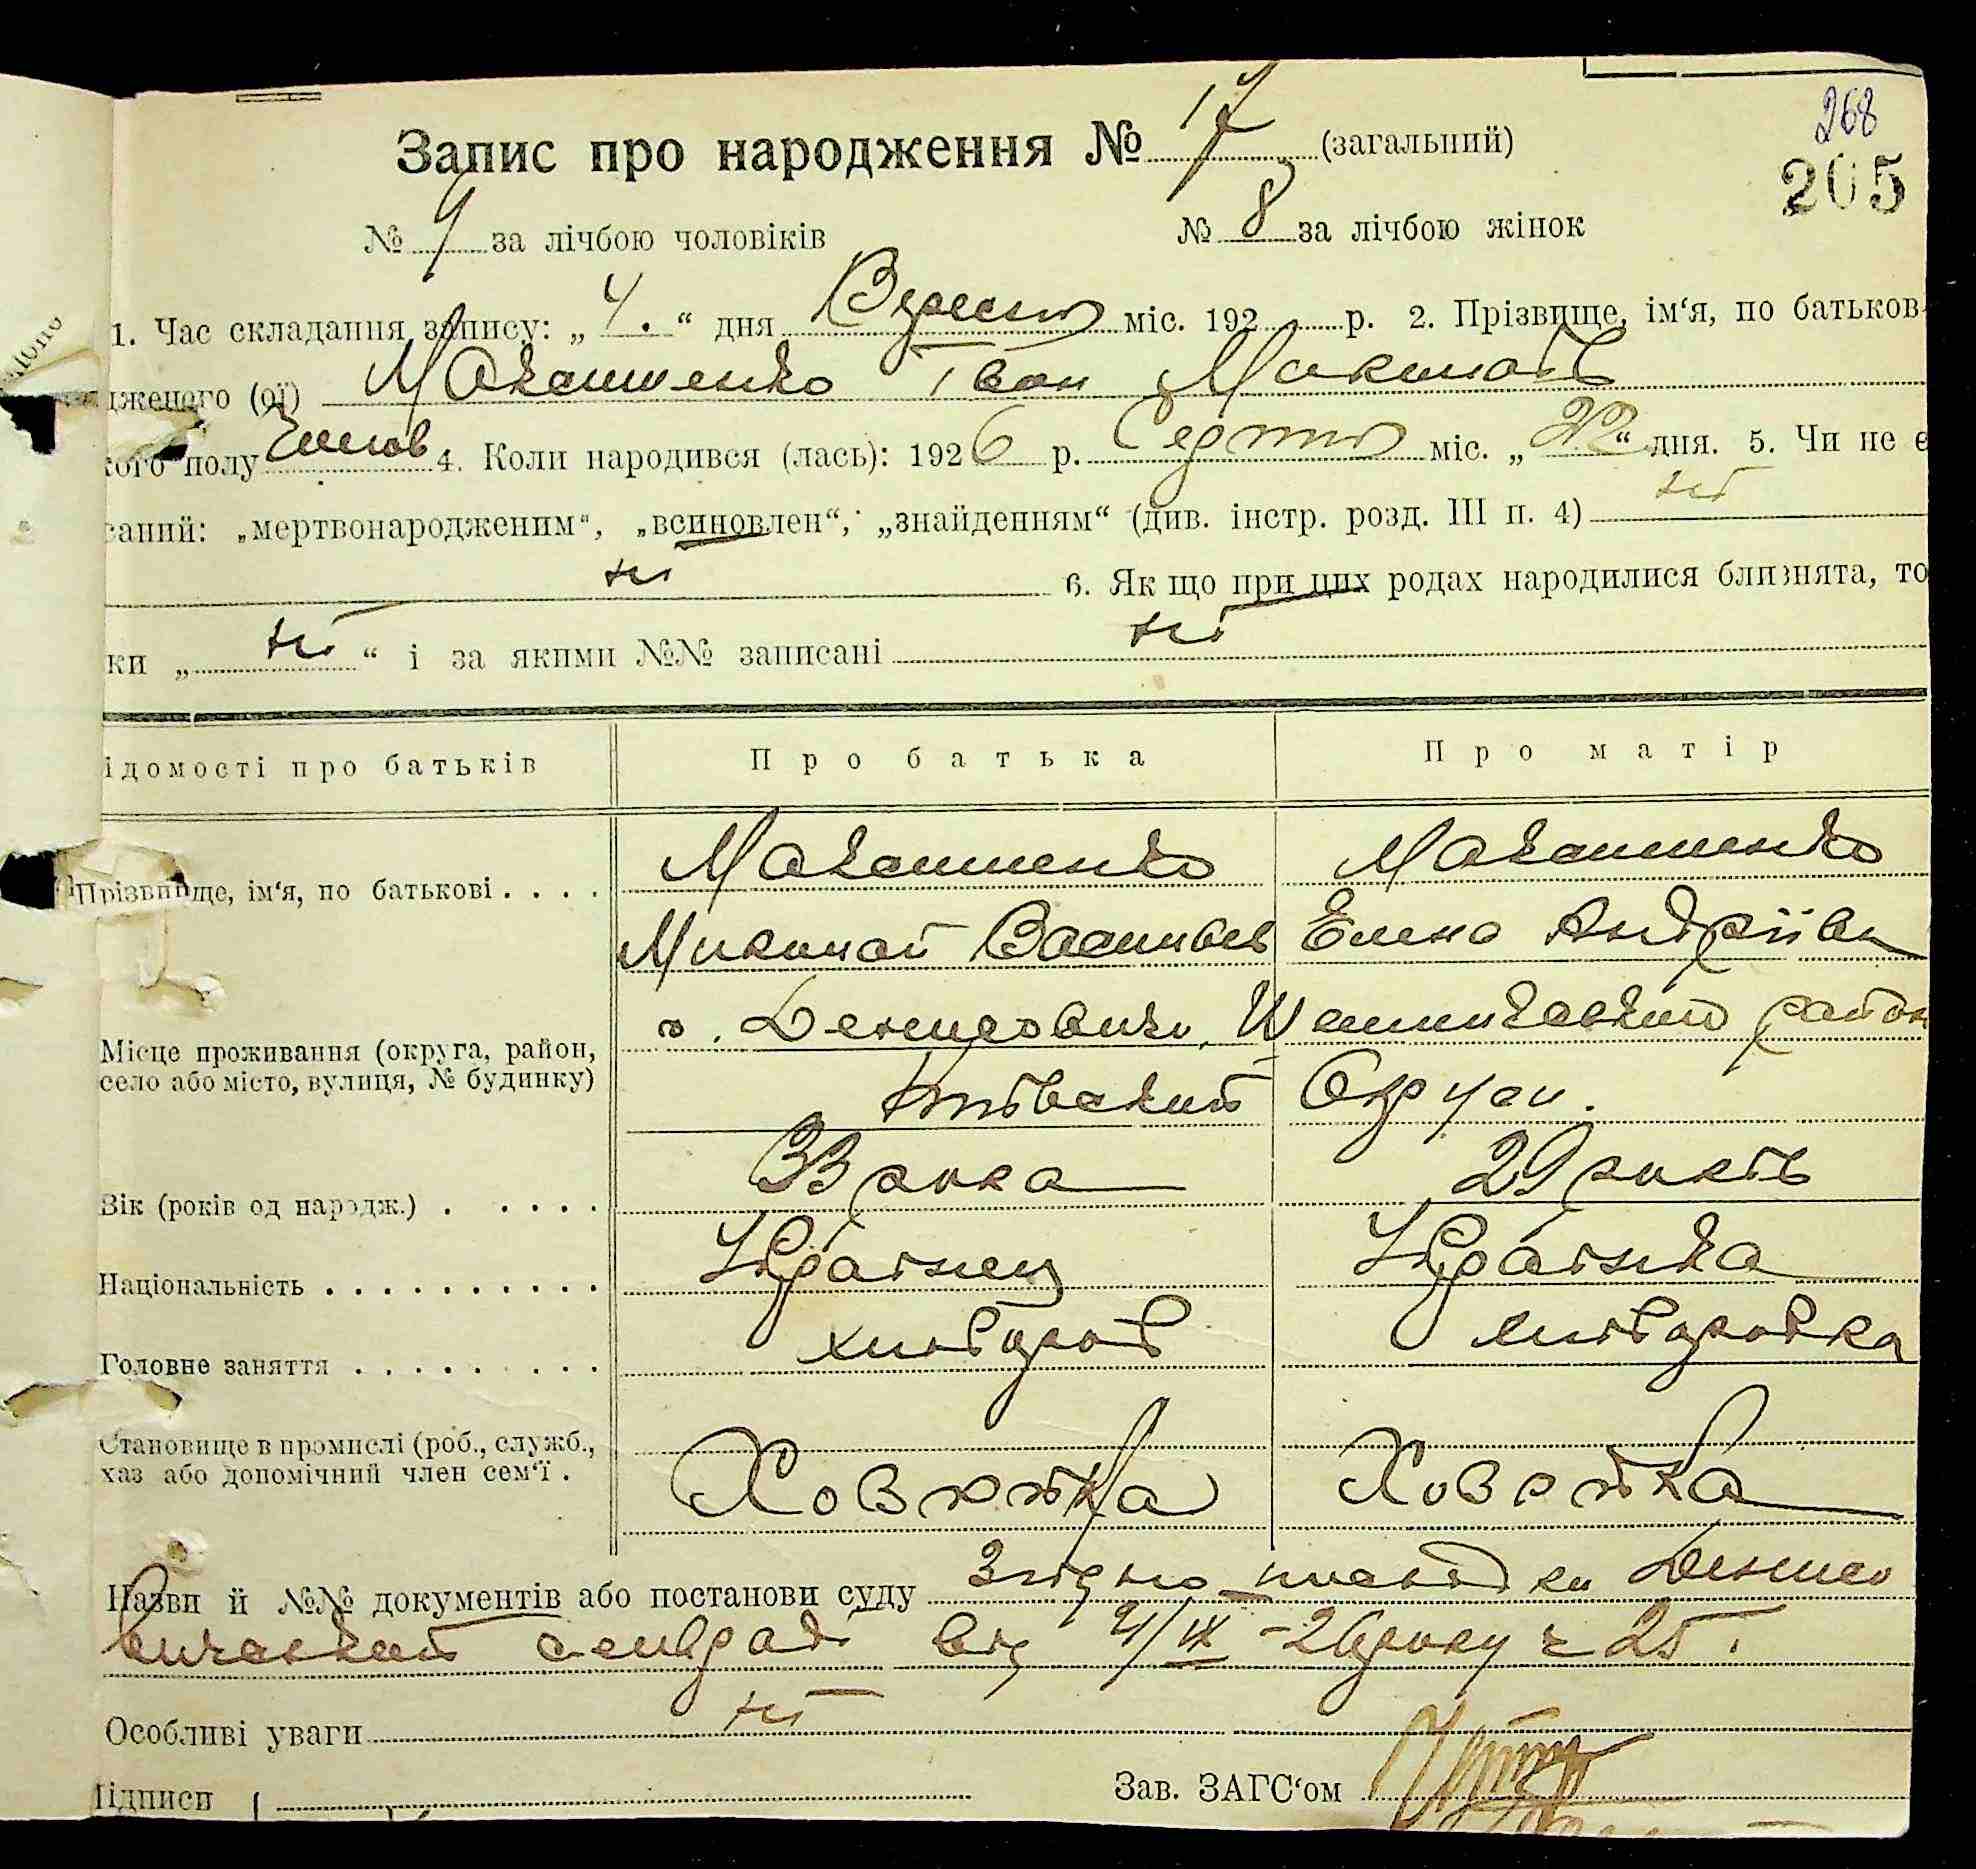 268
Запис про народження № 17 (загальний)
205
№ 9 за лічбою чоловіків № 8 за лічбою жінок
1. Час складання запису: „ 4. “ дня Вересня міс. 192 р. 2. Прізвище, ім‘я, по батьков
дженого (ої) Макаменко Іван Миколаїв
кого полу 4. Коли народився (лась): 1926 р. Серпня міс. „ 22 “ дня. 5. Чи не є
саний: „мертвонародженим“, „всиновлен“, „знайденням“ (див. інстр. розд. III п. 4) ні
ні 6. Як що при цих родах народилися близнята, то
ки „ ні “ і за якими №№ записані ні
ідомості про батьків Про батька Про матір
Прізвище, ім‘я, по батькові . . . . Макаменко Макаменко
Миколай Васильев Елена Андріівна
Місце проживання (округа, район, село або місто, вулиця, № будинку) с. Денисовичи, район
Київський Округи.
Вік (років од народж.) . . . . . 33 рока 29 років
Національність . . . . . . . . . . Украінец Украінка
Головне заняття . . . . . . . . . хлібороб хліборобка
Становище в промислі (роб., служб.,
хаз або допомічний член сем‘ї .
Назви й №№ документів або постанови суду Згідно Денисо
вичськой сельради від 4/IX -26 року № 25.
Особливі уваги ні
Підписи Зав. ЗАГС‘ом